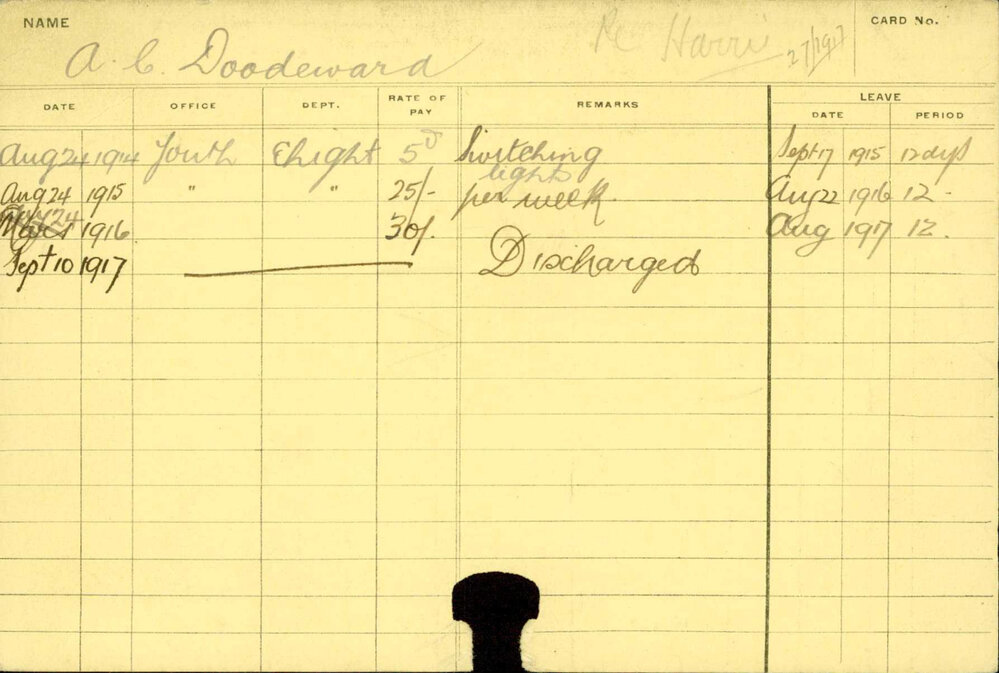 NAME A. C. Doodeward Re Harris 27/1917 CARD No.
DATE OFFICE DEPT. RATE OF PAY REMARKS LEAVE DATE PERIOD
Aug 24 1914 Youth Elright 5d Switching lights Sept 17 1915 12 dys
Aug 24 1915 " " 25/- per week Aug 22 1916 12 -
1916 30/. Aug 1917 12.
Sept 10 1917 Discharged